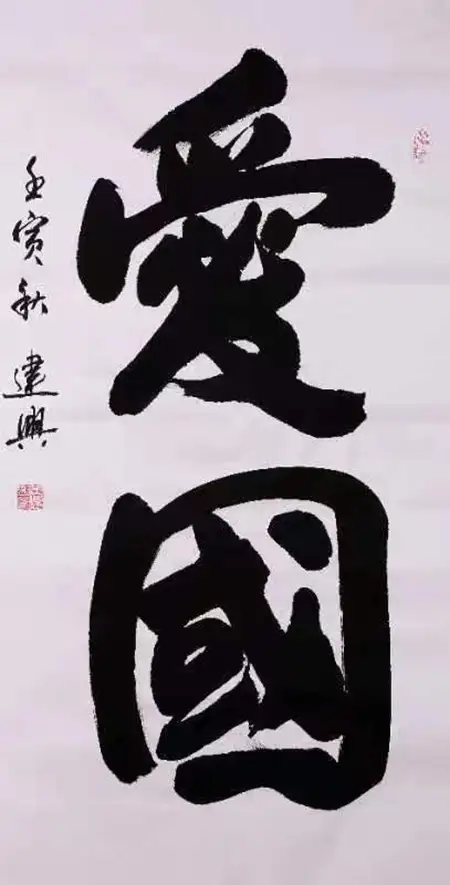 愛國
壬寅秋 建興